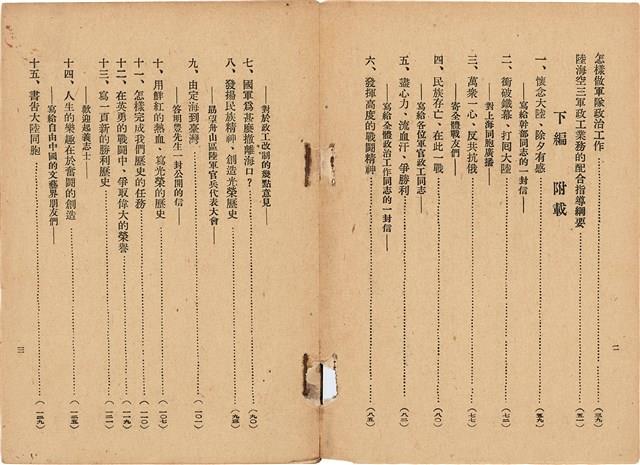 怎樣做軍隊政治工作……(三九)
陸海空三軍政工業務的配合指導綱要……(五一)
下編　附載
一、懷念大陸、除夕有感……(五九)
——寫給幹部同志的一封信——
二、衝破鐵幕、打囘大陸……(七三)
——對上海同胞廣播——
三、萬衆一心、反共抗俄……(七七)
——寄全體戰友們——
四、民族存亡、在此一戰……(八〇)
——寫給各位軍官政工同志——
五、盡心力、流血汗、爭勝利……(八三)
——寫給全體政治工作同志的一封信——
六、發揮高度的戰鬪精神……(八五)
二
——對於政工改制的幾點意見——
七、國軍爲甚麼撤離海口?……(九〇)
八、發揚民族精神、創造光榮歷史……(九四)
——舟山區陸軍官兵代表大會——
九、由定海到臺灣……(一〇一)
——答明豊先生一封公開的信——
十、用鮮紅的熱血、寫光榮的歷史……(一〇七)
十一、怎樣完成我們歷史的任務……(一一〇)
十二、在英勇的戰鬪中、爭取偉大的榮譽……(一一九)
十三、寫一頁新的勝利歷史……(一二一)
——歡迎起義志士——
十四、人生的樂趣在於奮鬪的創造……(一二五)
——寫給自由中國的文藝界朋友們——
十五、書告大陸同胞……(一二九)
三